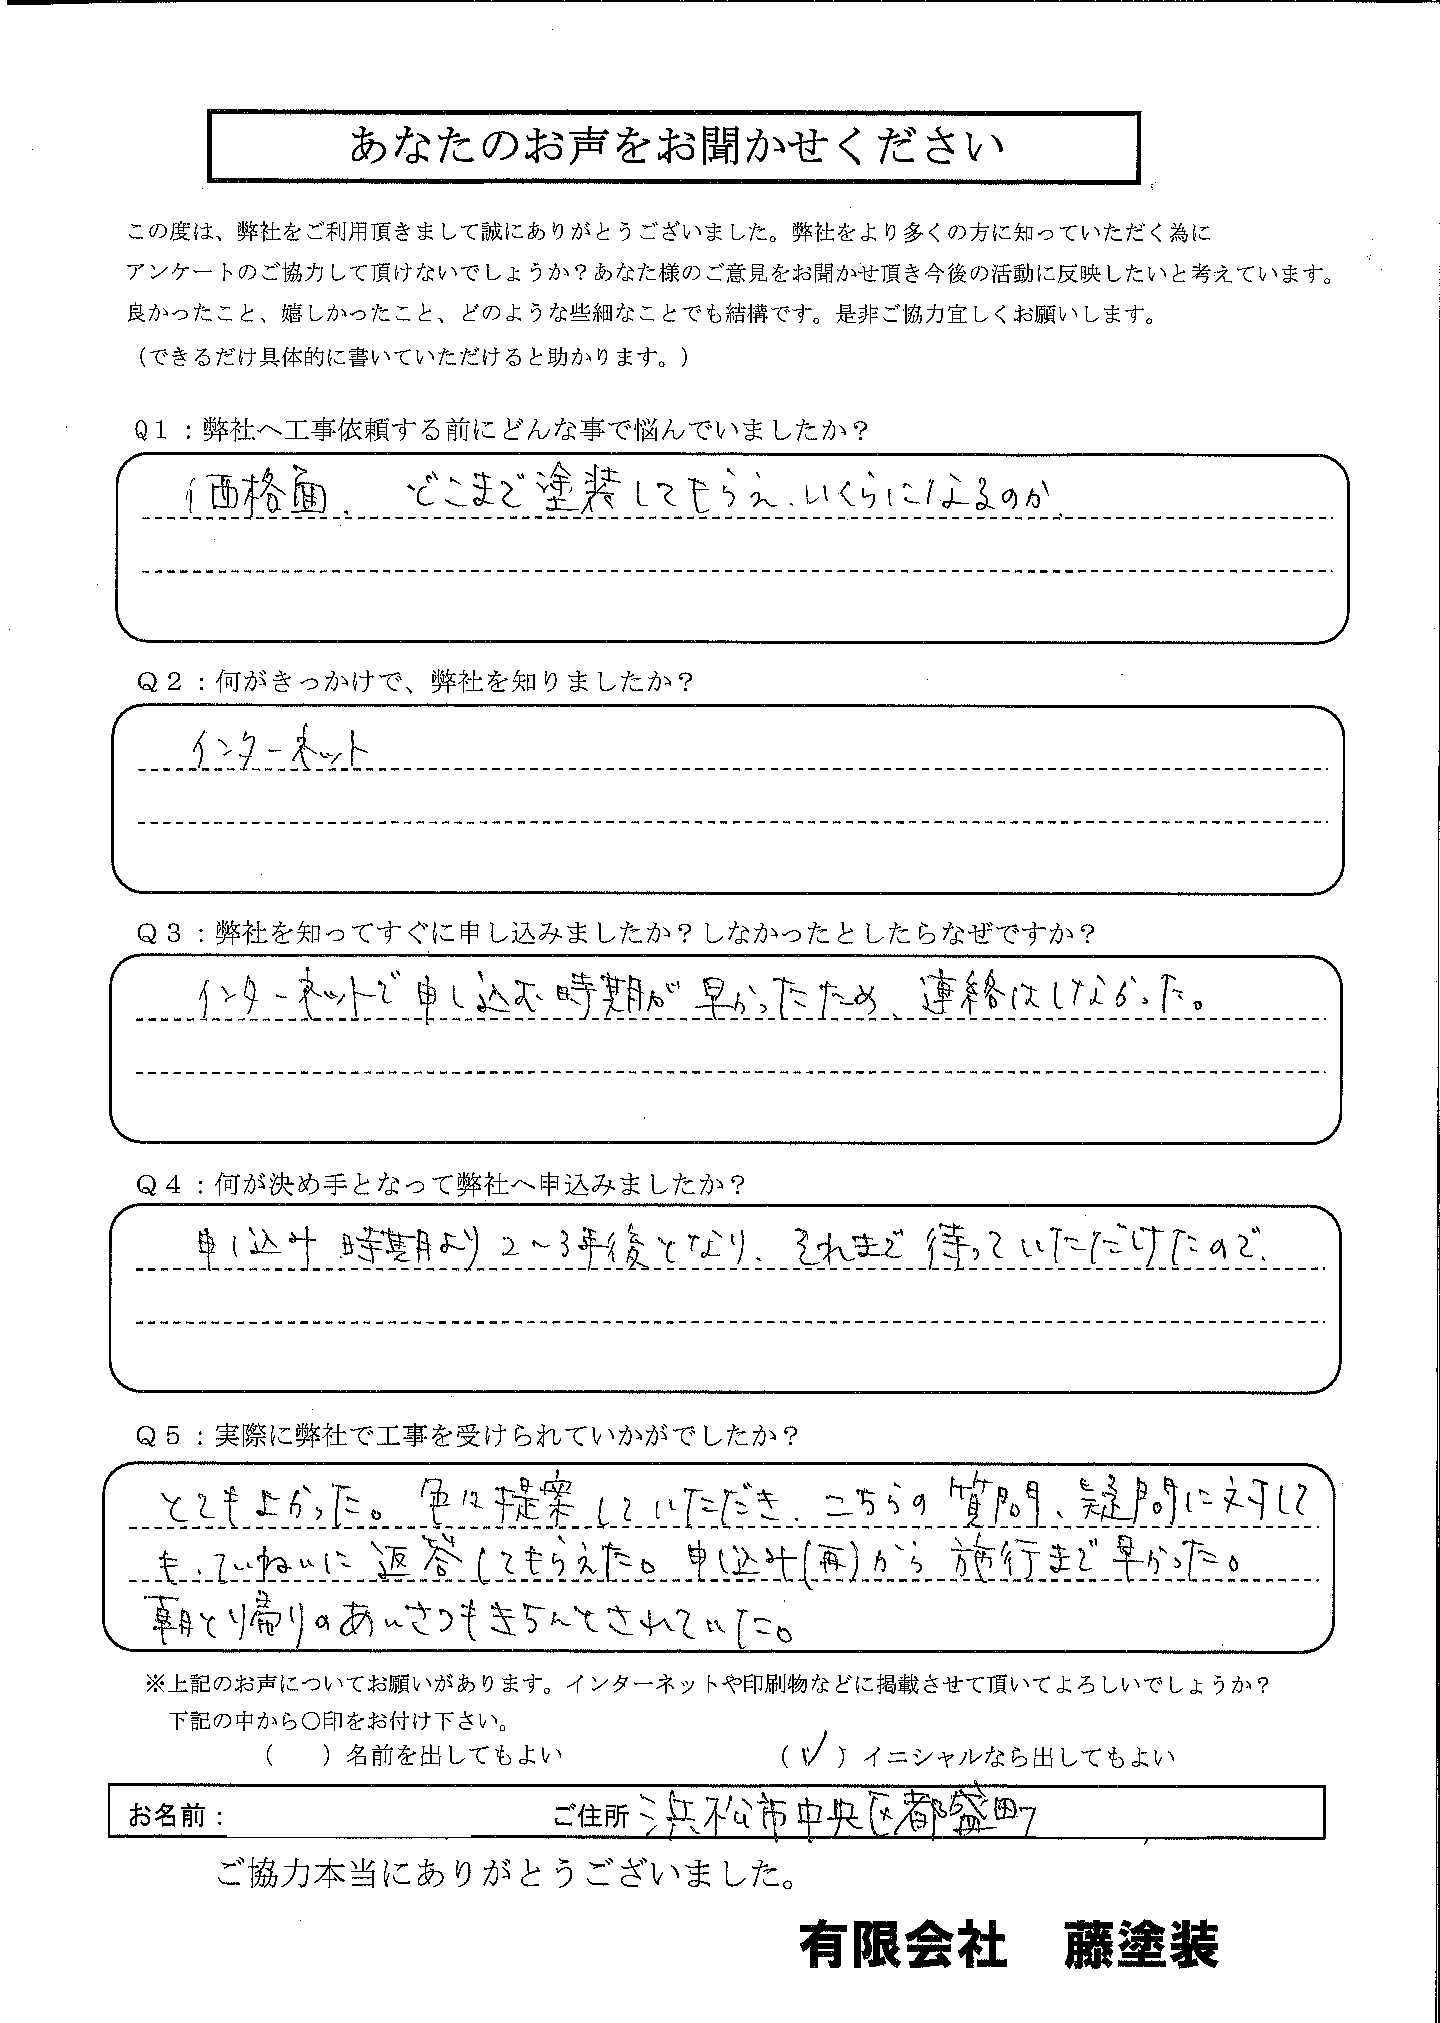 あなたのお声をお聞かせください
この度は、弊社をご利用頂きまして誠にありがとうございました。弊社をより多くの方に知っていただく為に
アンケートのご協力して頂けないでしょうか？あなた様のご意見をお聞かせ頂き今後の活動に反映したいと考えています。
良かったこと、嬉しかったこと、どのような些細なことでも結構です。是非ご協力宜しくお願いします。
（できるだけ具体的に書いていただけると助かります。）
Ｑ１：弊社へ工事依頼する前にどんな事で悩んでいましたか？
価格面、 どこまで塗装してもらえ、いくらになるのか、
Ｑ２：何がきっかけで、弊社を知りましたか？
インターネット
Ｑ３：弊社を知ってすぐに申し込みましたか？しなかったとしたらなぜですか？
インターネットで申し込む時期が早かったため、連絡はしなかった。
Ｑ４：何が決め手となって弊社へ申込みましたか？
申し込み時期より2～3年後となり、それまで待っていただけたので、
Ｑ５：実際に弊社で工事を受けられていかがでしたか？
とてもよかった。色は提案していただき、こちらの質問、疑問に対して
も、ていねいに返答してもらえた。申し込み(再)から施行まで早かった。
朝とり帰りのあいさつもきちんとされていた。
※上記のお声についてお願いがあります。インターネットや印刷物などに掲載させて頂いてよろしいでしょうか？
下記の中から〇印をお付け下さい。
（　　）名前を出してもよい （✓）イニシャルなら出してもよい
お名前： ご住所 浜松市中央区都盛町
ご協力本当にありがとうございました。
有限会社　藤塗装